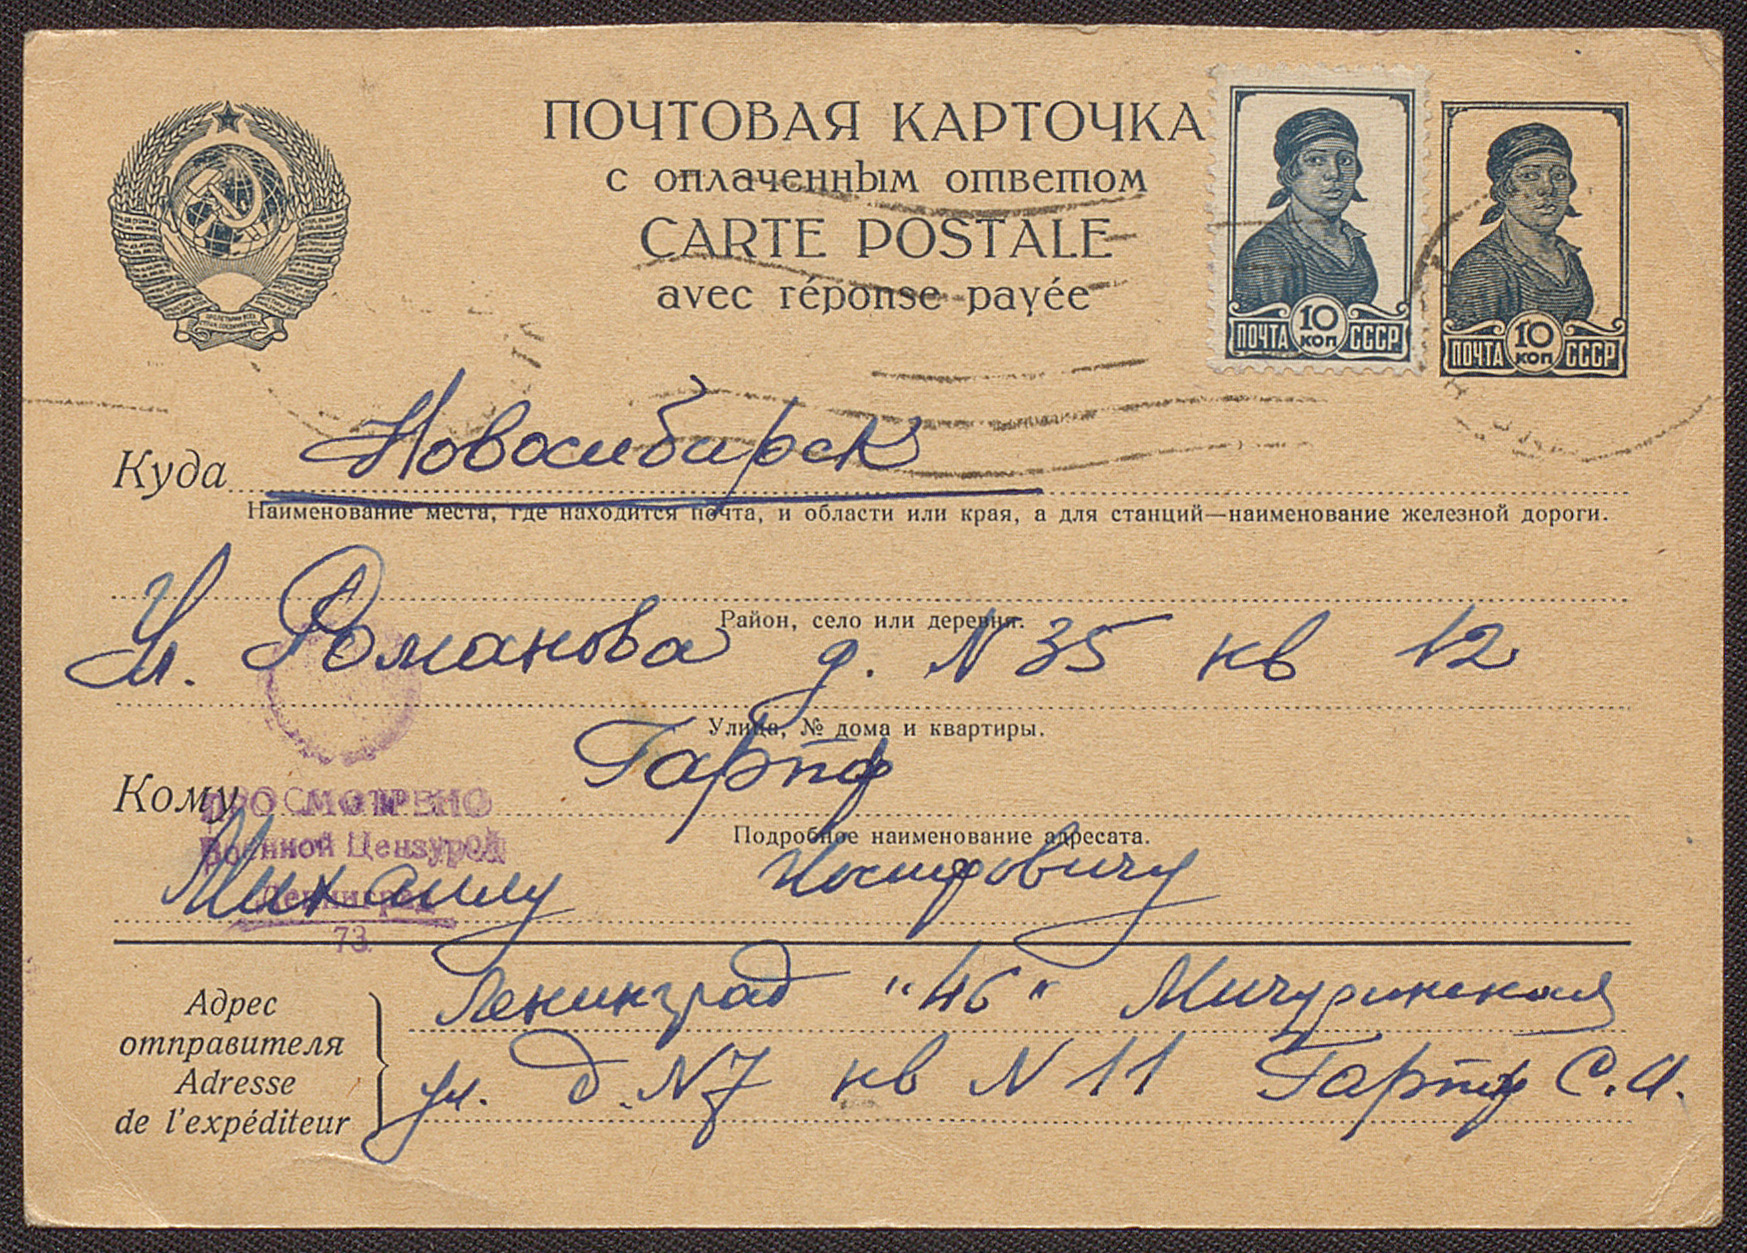 ПОЧТОВАЯ КАРТОЧКА
с оплаченным ответом
CARTE POSTALE
avec réponse payée
ПОЧТА 10 КОП СССР
ПОЧТА 10 КОП СССР
Куда Новосибирск
Наименование места, где находится почта, и области или края, а для станций—наименование железной дороги.
Район, село или деревня.
Ул. Романова д. N 35 кв 12
Улица, № дома и квартиры.
Кому Гарпф
Подробное наименование адресата.
Михаилу Иосифовичу
ПРОСМОТРЕНО
Военной Цензурой
Ленинград
73
Адрес
отправителя
Adresse
de l'expéditeur
Ленинград "46" Мичуринская
ул. д. N 7 кв N 11 Гарпф С. И.